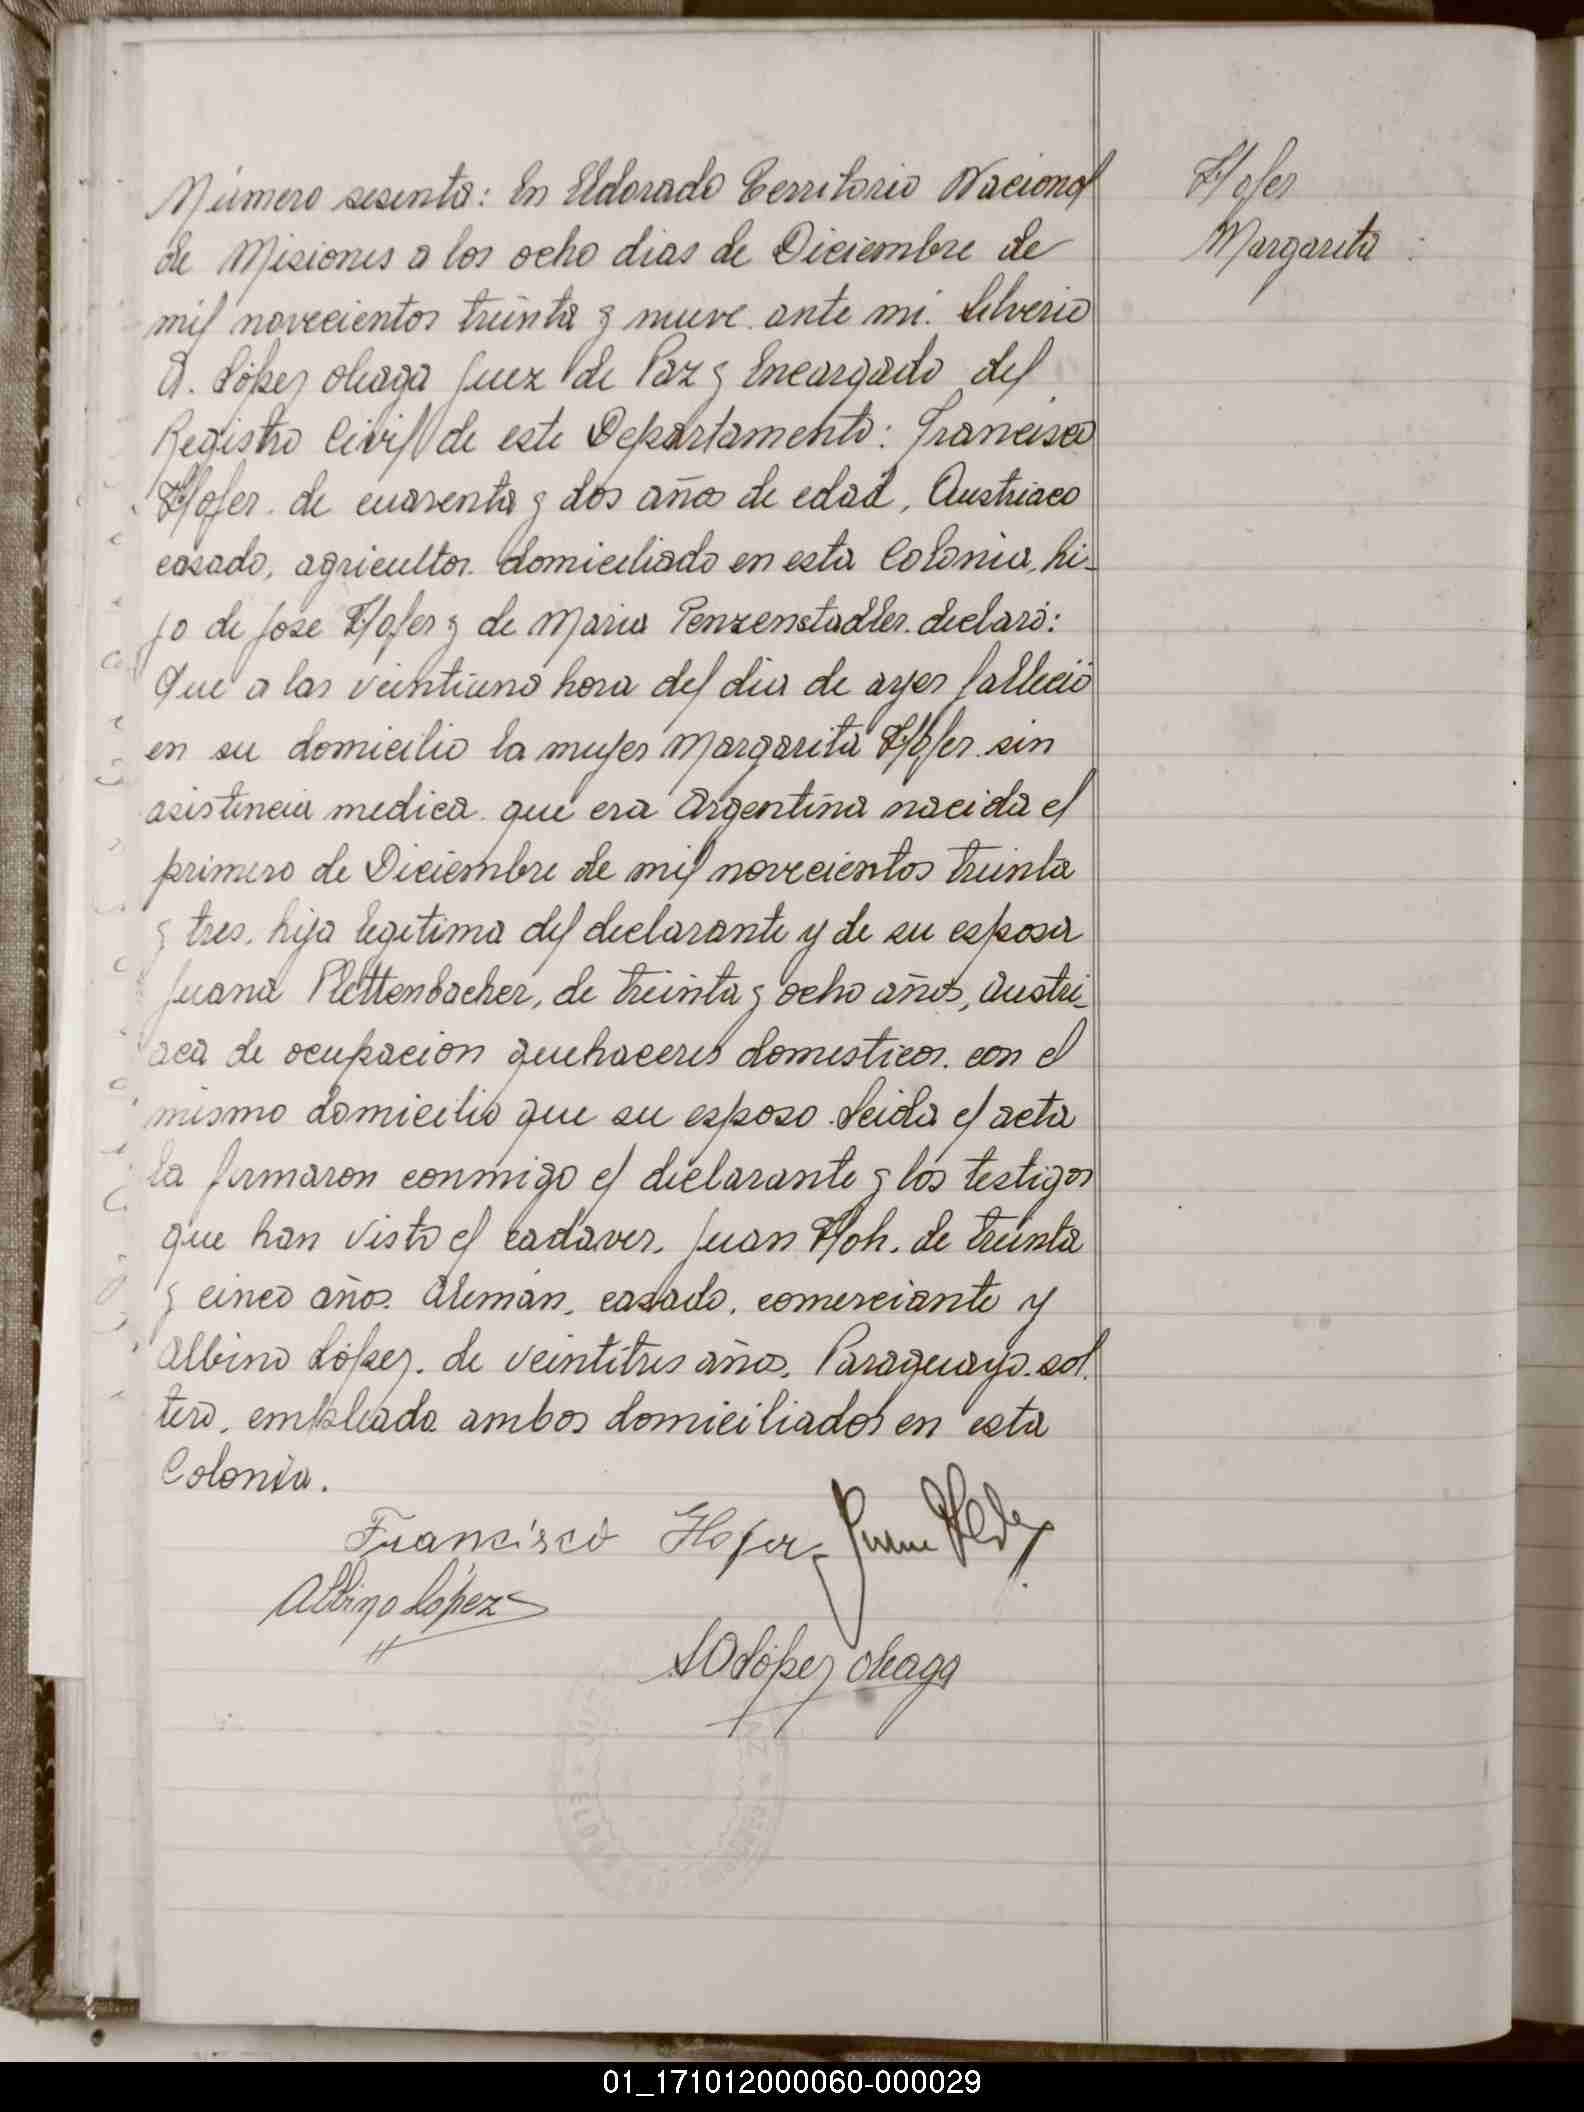 Número sesenta: En Eldorado Territorio Nacional
de Misiones a los ocho dias de Diciembre de
mil novecientos treinta y nueve. ante mi. Silverio
O. López Oleaga Juez de Paz y Encargado del
Registro Civil de este Departamento: Francisco
Hofer. de cuarenta y dos años de edad, Austriaco
casado, agricultor. domiciliado en esta Colonia, hi-
jo de Jose Hofer y de Maria Penzenstadler. declaró:
Que a las veintiuna hora del dia de ayer falleció
en su domicilio la mujer Margarita Hofer. sin
asistencia medica. que era Argentina nacida el
primero de Diciembre de mil novecientos treinta
y tres. hija legitima del declarante y de su esposa
Juana Plettenbacher, de treinta y ocho años, Austri-
aca de ocupación quehaceres domesticos. con el
mismo domicilio que su esposo. Leida el acta
la firmaron conmigo el declarante y los testigos
que han visto el cadaver. Juan Hoh. de treinta
y cinco años. Alemán, casado, comerciante y
Albino López. de veintitres años. Paraguayo. sol.
tero, empleado ambos domiciliados en esta
Colonia.
Francisco Hofer
Albino López
SO López Oleaga
Hofer
Margarita
01_171012000060-000029